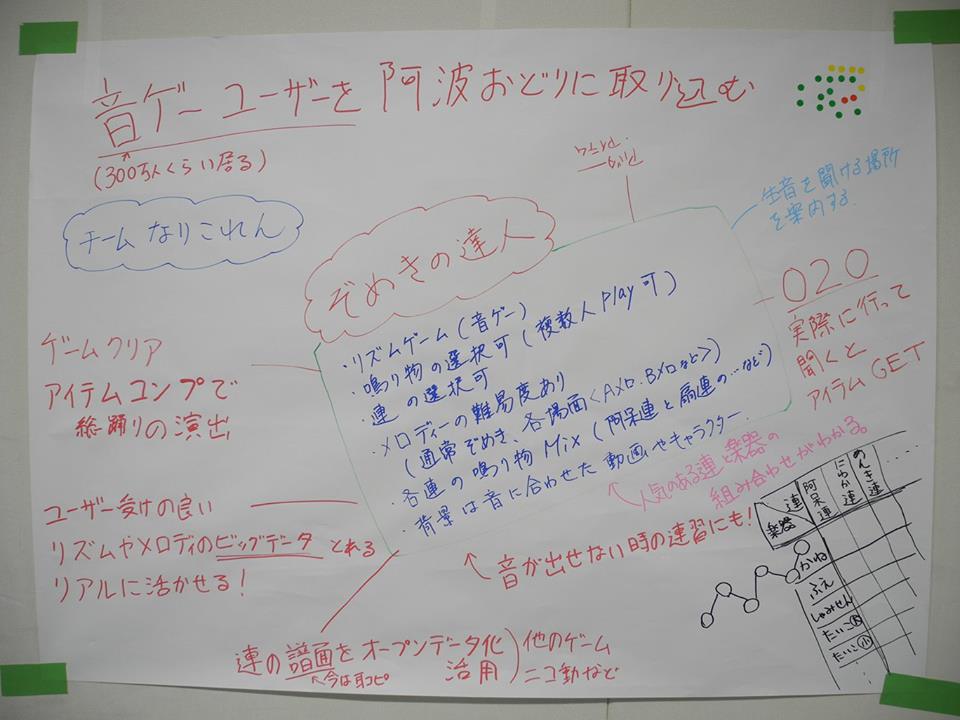 音ゲーユーザーを阿波おどりに取り込む
(300万人くらい居る)
チームなりこれん
ぞめきの達人
生音を聞ける場所
を案内する
・リズムゲーム(音ゲー)
・鳴り物の選択可(複数人Play可)
・連の選択可
・メロディーの難易度あり
(通常ぞめき、各場面<Aメロ.Bメロなど>)
・各連の鳴り物Mix(阿呆連と扇連の…など)
・背景は音に合わせた動画やキャラクター
O2O
実際に行って
聞くと
アイテムGET
ゲームクリア
アイテムコンプで
総踊りの演出
ユーザー受けの良い
リズムやメロディのビッグデータとれる
リアルに活かせる!
人気のある連と楽器の
組み合わせがわかる。
音が出せない時の連習にも!
連の譜面をオープンデータ化
活用
今は耳コピ
他のゲーム
ニコ動など
連
楽器
阿呆連
にわか連
のんき連
…
かね
ふえ
しゃみせん
たいこ大
たいこ小